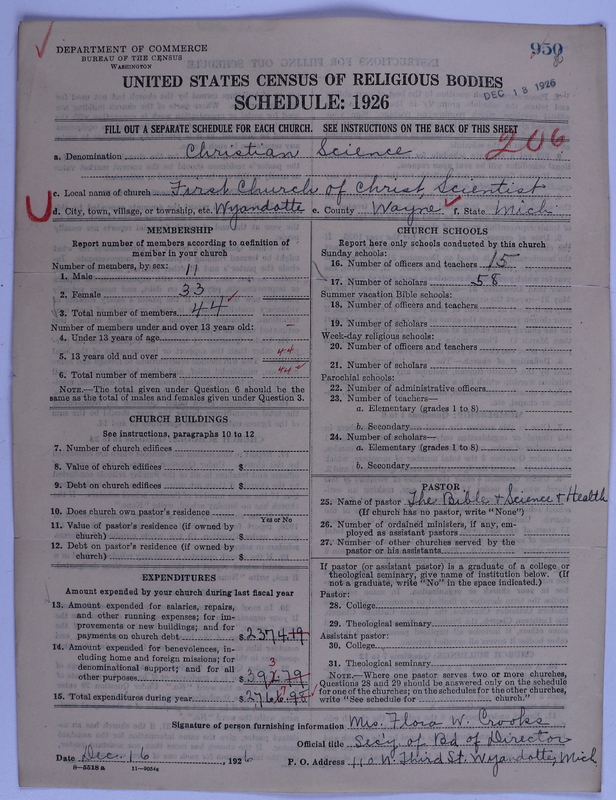 DEPARTMENT OF COMMERCE
BUREAU OF THE CENSUS
WASHINGTON
950
8
UNITED STATES CENSUS OF RELIGIOUS BODIES
DEC 18 1926
SCHEDULE: 1926
FILL OUT A SEPARATE SCHEDULE FOR EACH CHURCH. SEE INSTRUCTIONS ON THE BACK OF THIS SHEET
206
a. Denomination Christian Science
c. Local name of church First Church of Christ, Scientist
d. City, town, village, or township, etc. Wyandotte e. County Wayne f. State Mich
MEMBERSHIP
Report number of members according to definition of
member in your church
Number of members, by sex:
1. Male 11
2. Female 33
3. Total number of members 44
Number of members under and over 13 years old:
4. Under 13 years of age –
5. 13 years old and over 44
6. Total number of members 44
NOTE.—The total given under Question 6 should be the
same as the total of males and females given under Question 3.
CHURCH BUILDINGS
See instructions, paragraphs 10 to 12
7. Number of church edifices
8. Value of church edifices $
9. Debt on church edifices $
10. Does church own pastor's residence
Yes or No
11. Value of pastor's residence (if owned by
church) $
12. Debt on pastor's residence (if owned by
church) $
EXPENDITURES
Amount expended by your church during last fiscal year
13. Amount expended for salaries, repairs,
and other running expenses; for im-
provements or new buildings; and for
payments on church debt $ 2374.19
14. Amount expended for benevolences, in-
cluding home and foreign missions; for
denominational support; and for all
3
other purposes $ 392.79
15. Total expenditures during year $ 2766.98
CHURCH SCHOOLS
Report here only schools conducted by this church
Sunday schools:
16. Number of officers and teachers 15
17. Number of scholars 58
Summer vacation Bible schools:
18. Number of officers and teachers
19. Number of scholars
Week-day religious schools:
20. Number of officers and teachers
21. Number of scholars
Parochial schools:
22. Number of administrative officers
23. Number of teachers—
a. Elementary (grades 1 to 8)
b. Secondary
24. Number of scholars—
a. Elementary (grades 1 to 8)
b. Secondary
PASTOR
25. Name of pastor The Bible & Science & Health
(If church has no pastor, write "None")
26. Number of ordained ministers, if any, em-
ployed as assistant pastors
27. Number of other churches served by the
pastor or his assistants
If pastor (or assistant pastor) is a graduate of a college or
theological seminary, give name of institution below. (If
not a graduate, write "No" in the space indicated.)
Pastor:
28. College
29. Theological seminary
Assistant pastor:
30. College
31. Theological seminary
NOTE.—Where one pastor serves two or more churches,
Questions 28 and 29 should be answered only on the schedule
for one of the churches; on the schedules for the other churches,
write "See schedule for church."
Signature of person furnishing information Mrs. Flora W. Crooks
Official title Sec'y of Bd of Director
Date Dec. 16, 1926 P. O. Address 110 N. Third St. Wyandotte, Mich
8—5518 a 11—9054a